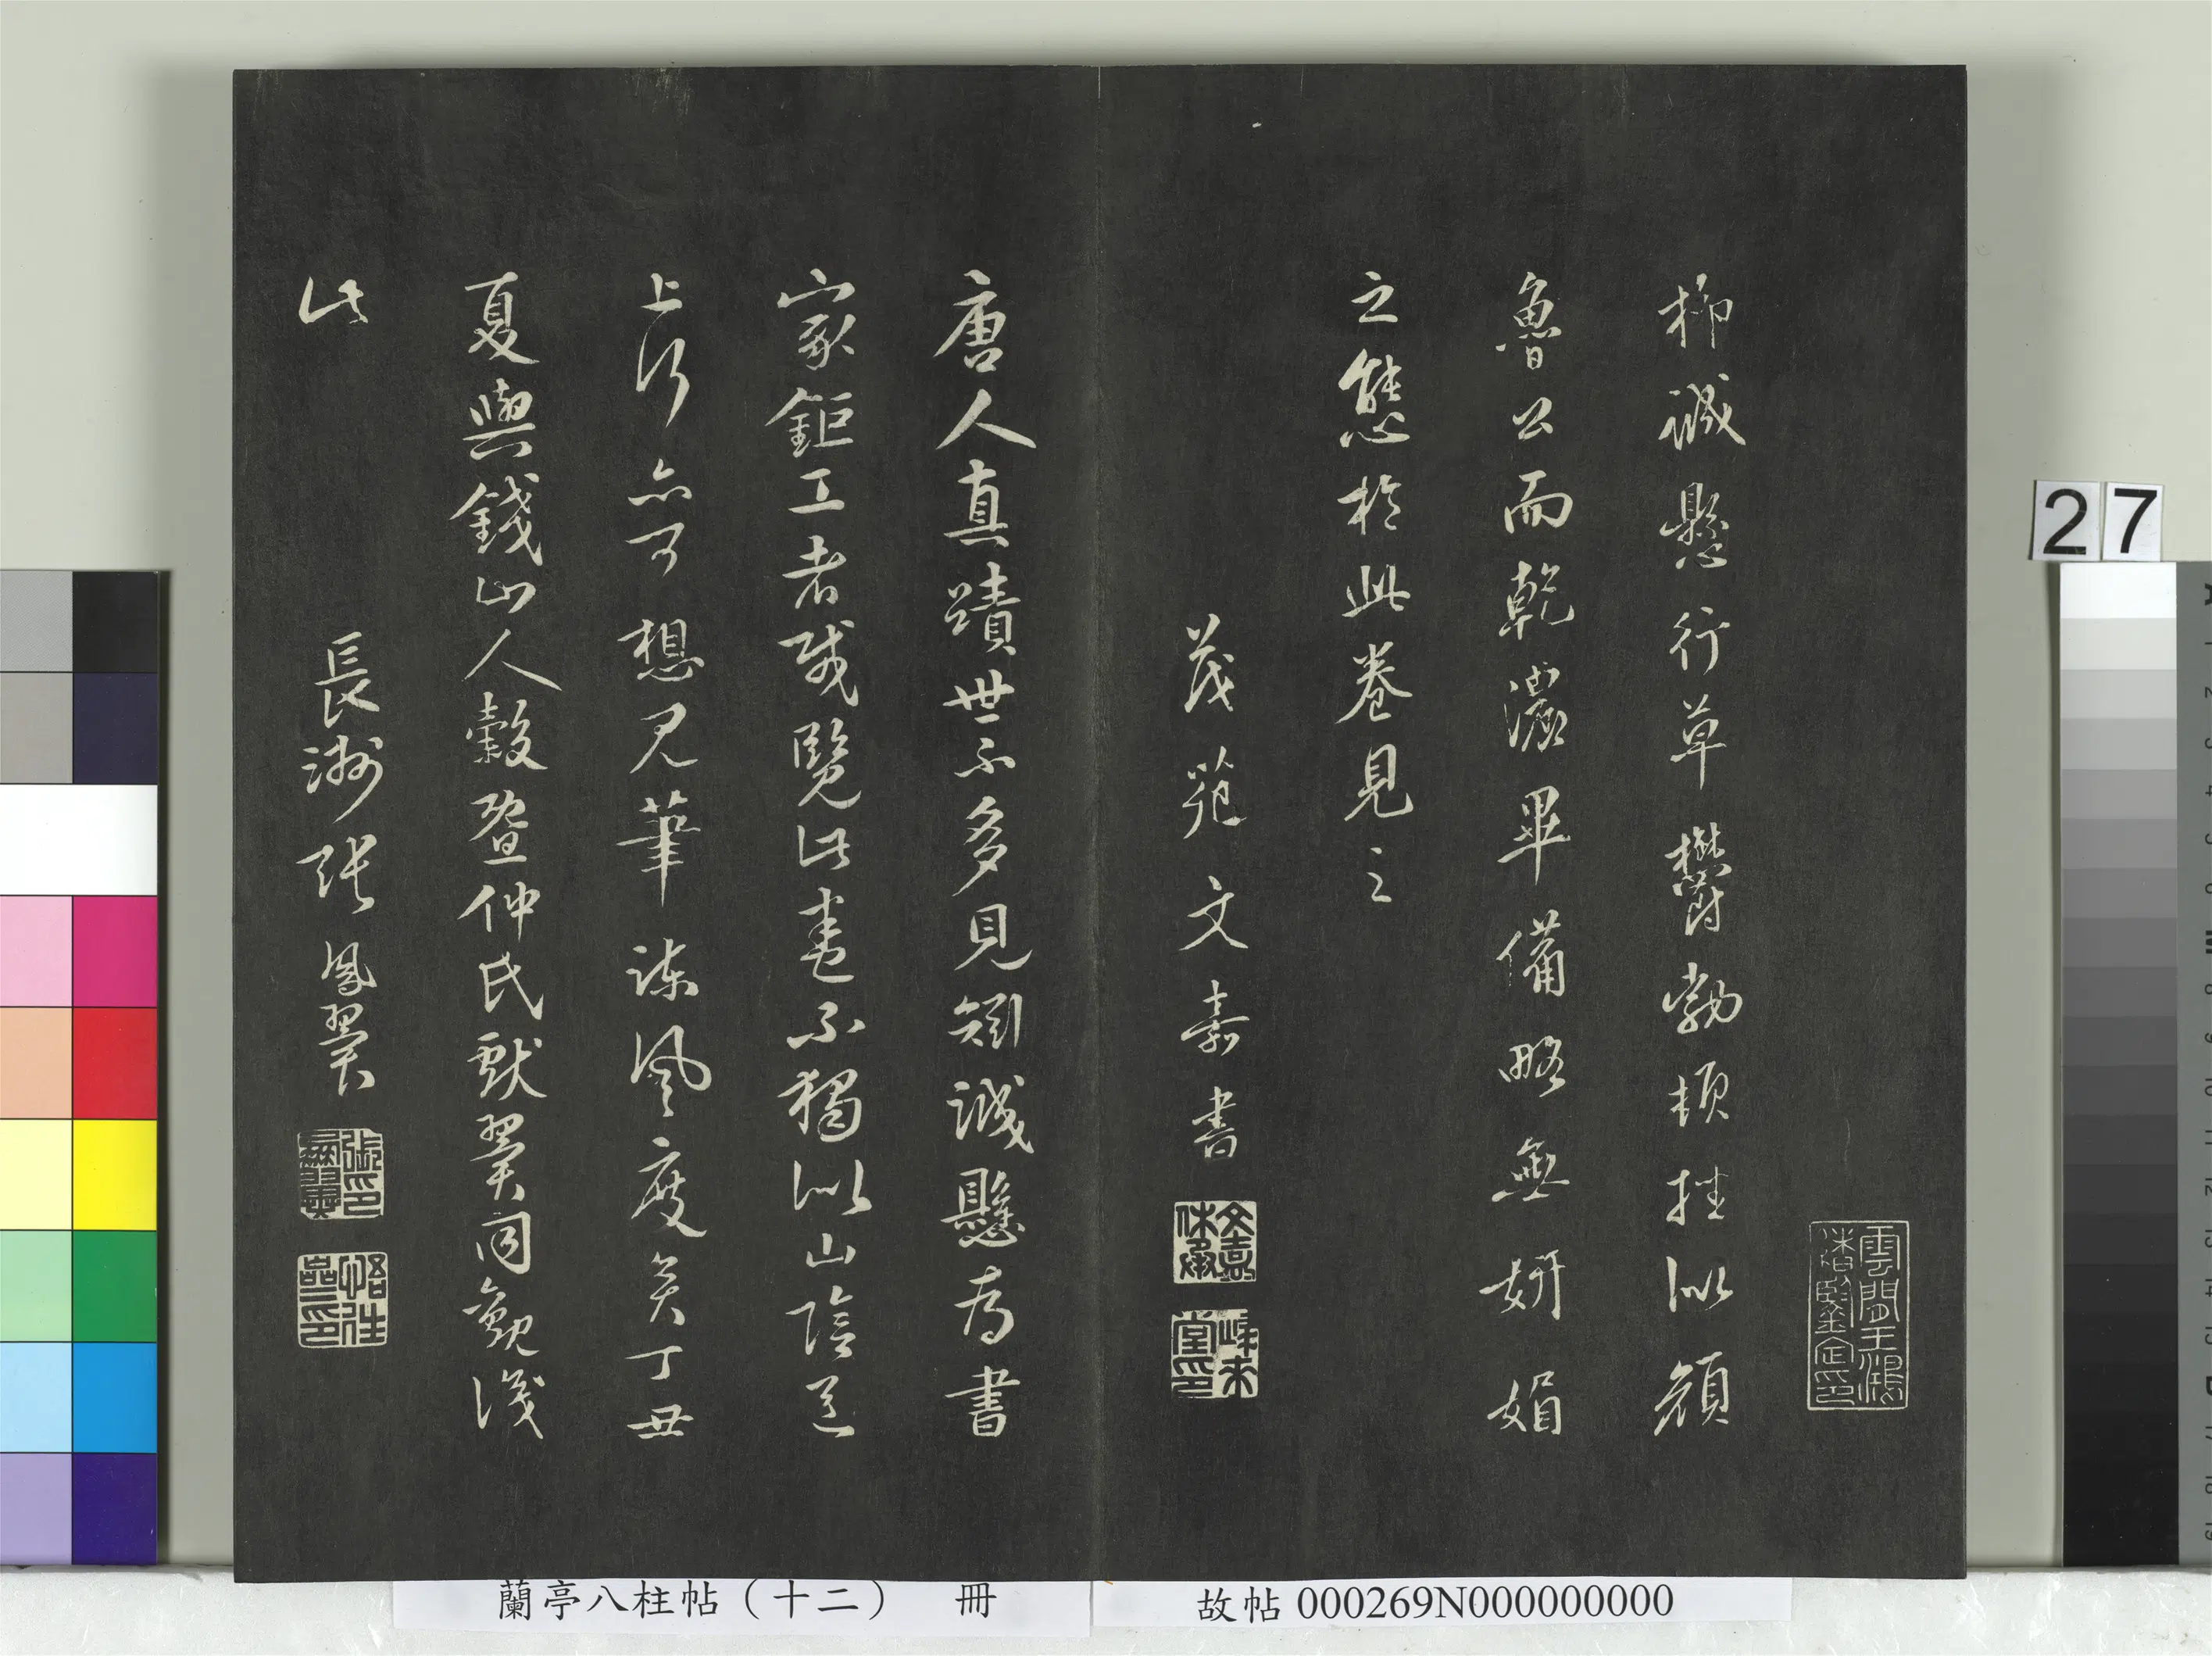 柳誠懸行草鬱勃頓挫似顏
魯公而乾濃畢備略無妍媚
之態於此卷見之
茂苑文嘉書
文嘉休承
唐人真蹟世不多見柳誠懸為書
家鉅工者城覽此書不獨似山陰逕
上行亦可想見筆諫風度矣丁丑
夏與錢山人穀暨仲氏獻翼同觀識
此
長洲張鳳翼
27
蘭亭八柱帖（十二） 冊
故帖000269N000000000